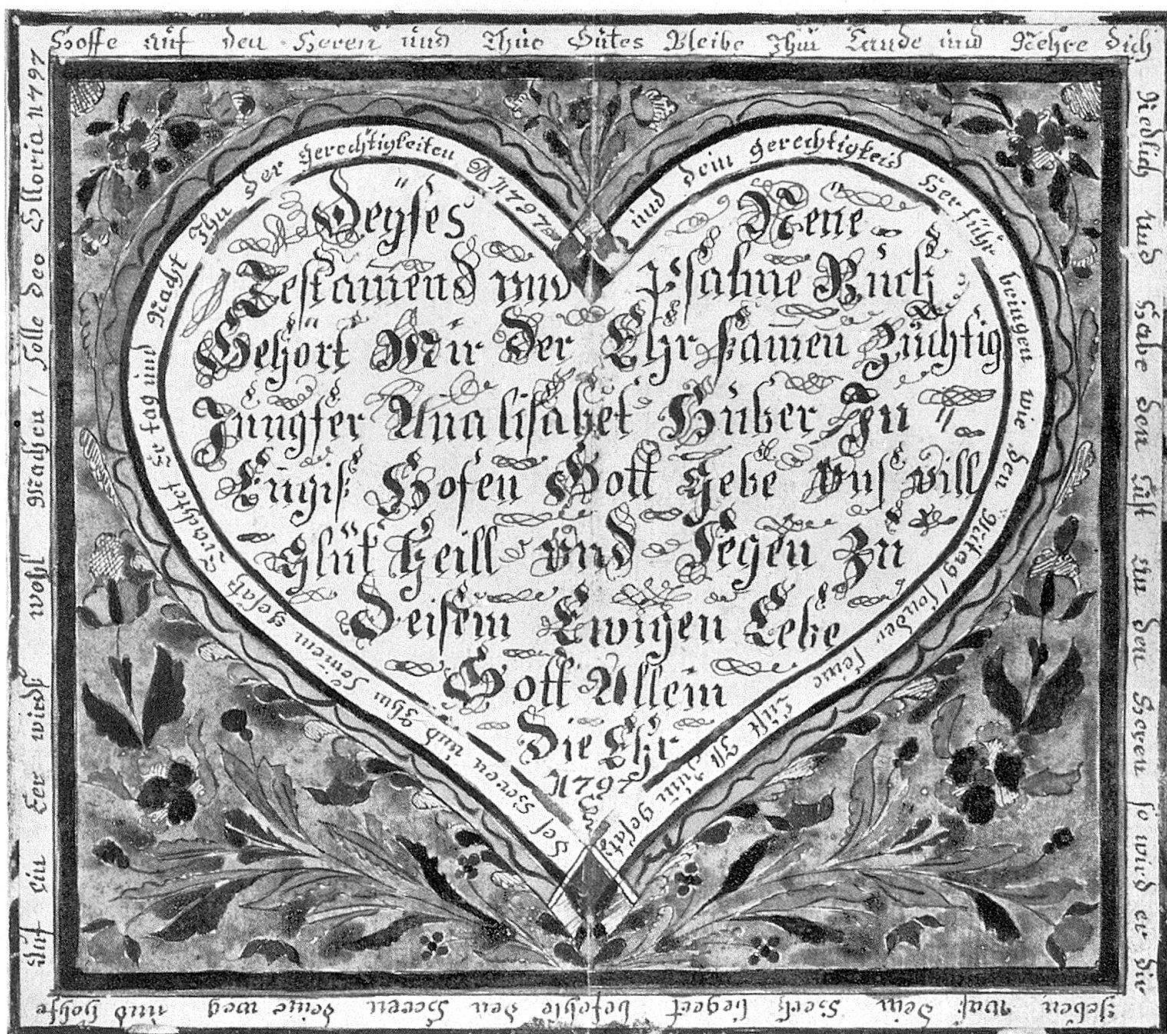 Hoffe auf den Heren und Thue Gutes Bleibe Ihm Lande und Nehre dich
Redlich und Habe den Lust an den Heren so wird er dir
geben waß dein Hertz begert befehle den Heren deine weg und hoffe
auf Ein Eer wirdß wohl Machen / Solle deo Gloria 1797
und dein gerechtigkeid Herführ bringen wie den Mittag / sonder seine Lust Ist Zum gesetz
Deß Heren und Ihm seinem gesatz Trachtet Er tag und Nacht Ihn der gerechtigkeiten A 1797
Deyses Neüe
Testamend und Psalme Buch
Gehört Mir Der Ehr samen Züchtig
Jungfer Ana lisabet Huber Zu
Hofen Gott Gebe Unß vill
Glük Heill und Segen Zu
Deisem Ewigen Lebe
Gott Allein
Die Ehr
1797